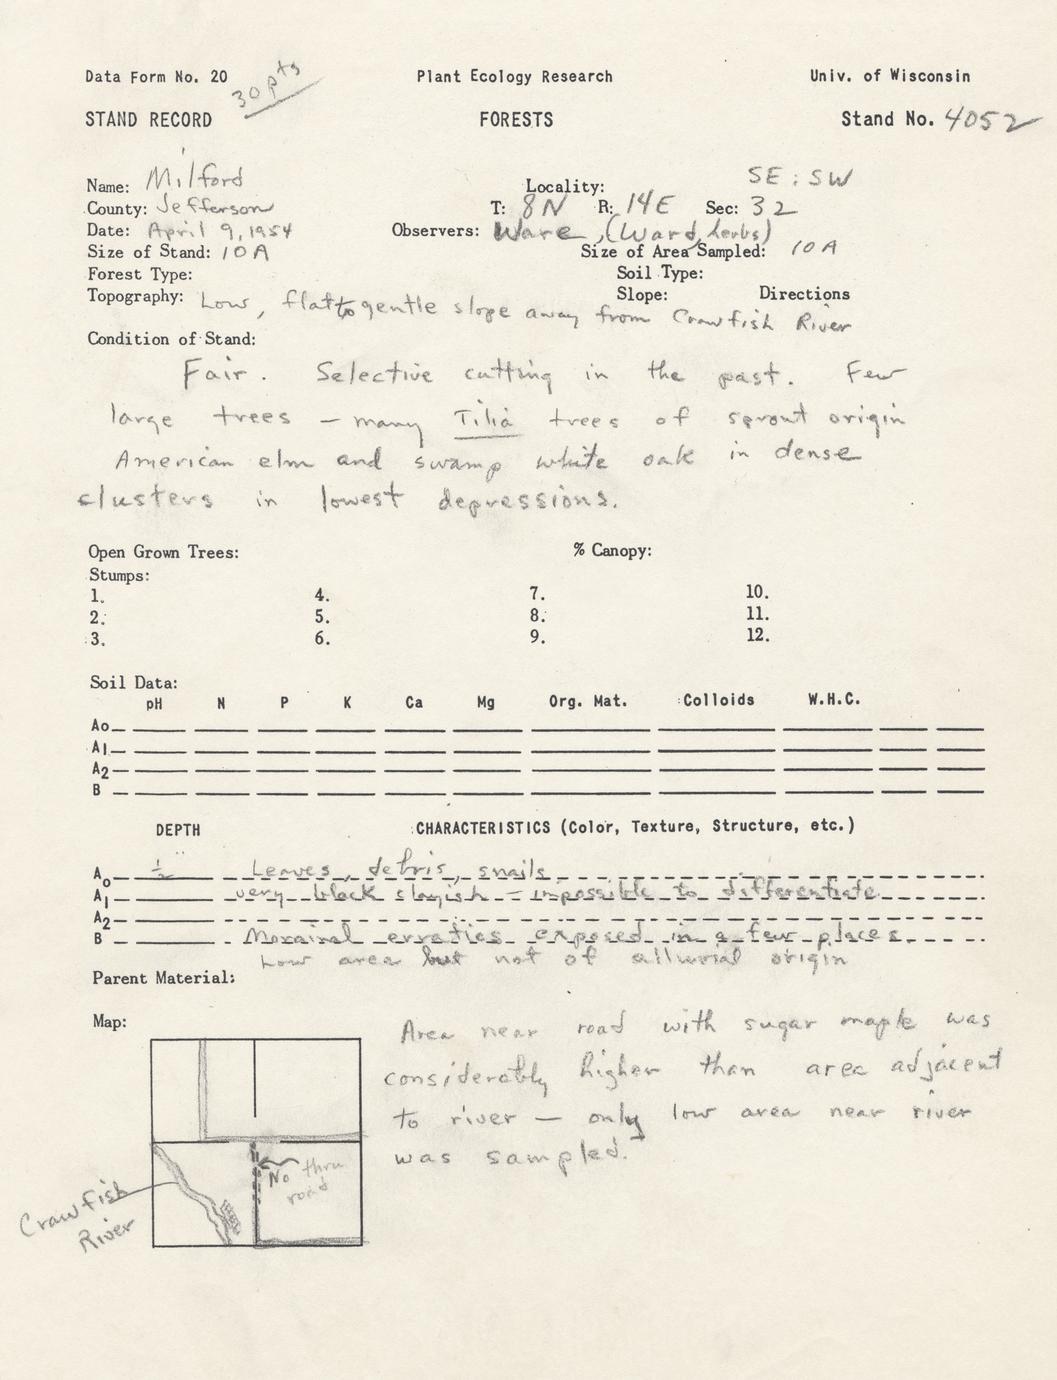 Data Form No. 20 30 pts Plant Ecology Research Univ. of Wisconsin
STAND RECORD FORESTS Stand No. 4052
Name: Milford Locality: SE : SW
County: Jefferson T: 8N R: 14E Sec: 32
Date: April 9, 1954 Observers: Ware, (Ward, herbs)
Size of Stand: 10 A Size of Area Sampled: 10 A
Forest Type: Soil Type:
Topography: Low, flat to gentle slope away from Crawfish River Slope: Directions
Condition of Stand:
Fair. Selective cutting in the past. Few
large trees – many Tilia trees of sprout origin
American elm and swamp white oak in dense
clusters in lowest depressions.
Open Grown Trees: % Canopy:
Stumps:
1. 4. 7. 10.
2. 5. 8. 11.
3. 6. 9. 12.
Soil Data:
pH N P K Ca Mg Org. Mat. Colloids W.H.C.
Ao
A1
A2
B
DEPTH CHARACTERISTICS (Color, Texture, Structure, etc.)
Ao ½" Leaves, debris, snails
A1 very black clayish – impossible to differentiate
A2
B Morainal erratics exposed in a few places
Low area but not of alluvial origin
Parent Material:
Map:
Area near road with sugar maple was
considerably higher than area adjacent
to river — only low area near river
was sampled.
No thru
road
Crawfish
River